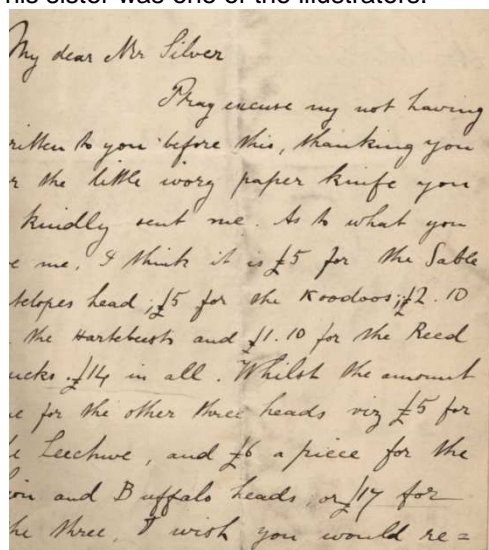 his sister was one of the illustrators.
My dear Mr Silver
Pray excuse my not having
ritten to you before this, thanking you
r the little ivory paper knife you
kindly sent me. As to what you
e me, I think it is £5 for the Sable
telopes head; £5 for the Koodoos; £2.10
the Hartebeests and £1.10 for the Reed
ucks. £14 in all. Whilst the amount
ue for the other three heads viz £5 for
e Leechwe, and £6 a piece for the
ion and Buffalo heads, or £17 for
he three, I wish you would re=